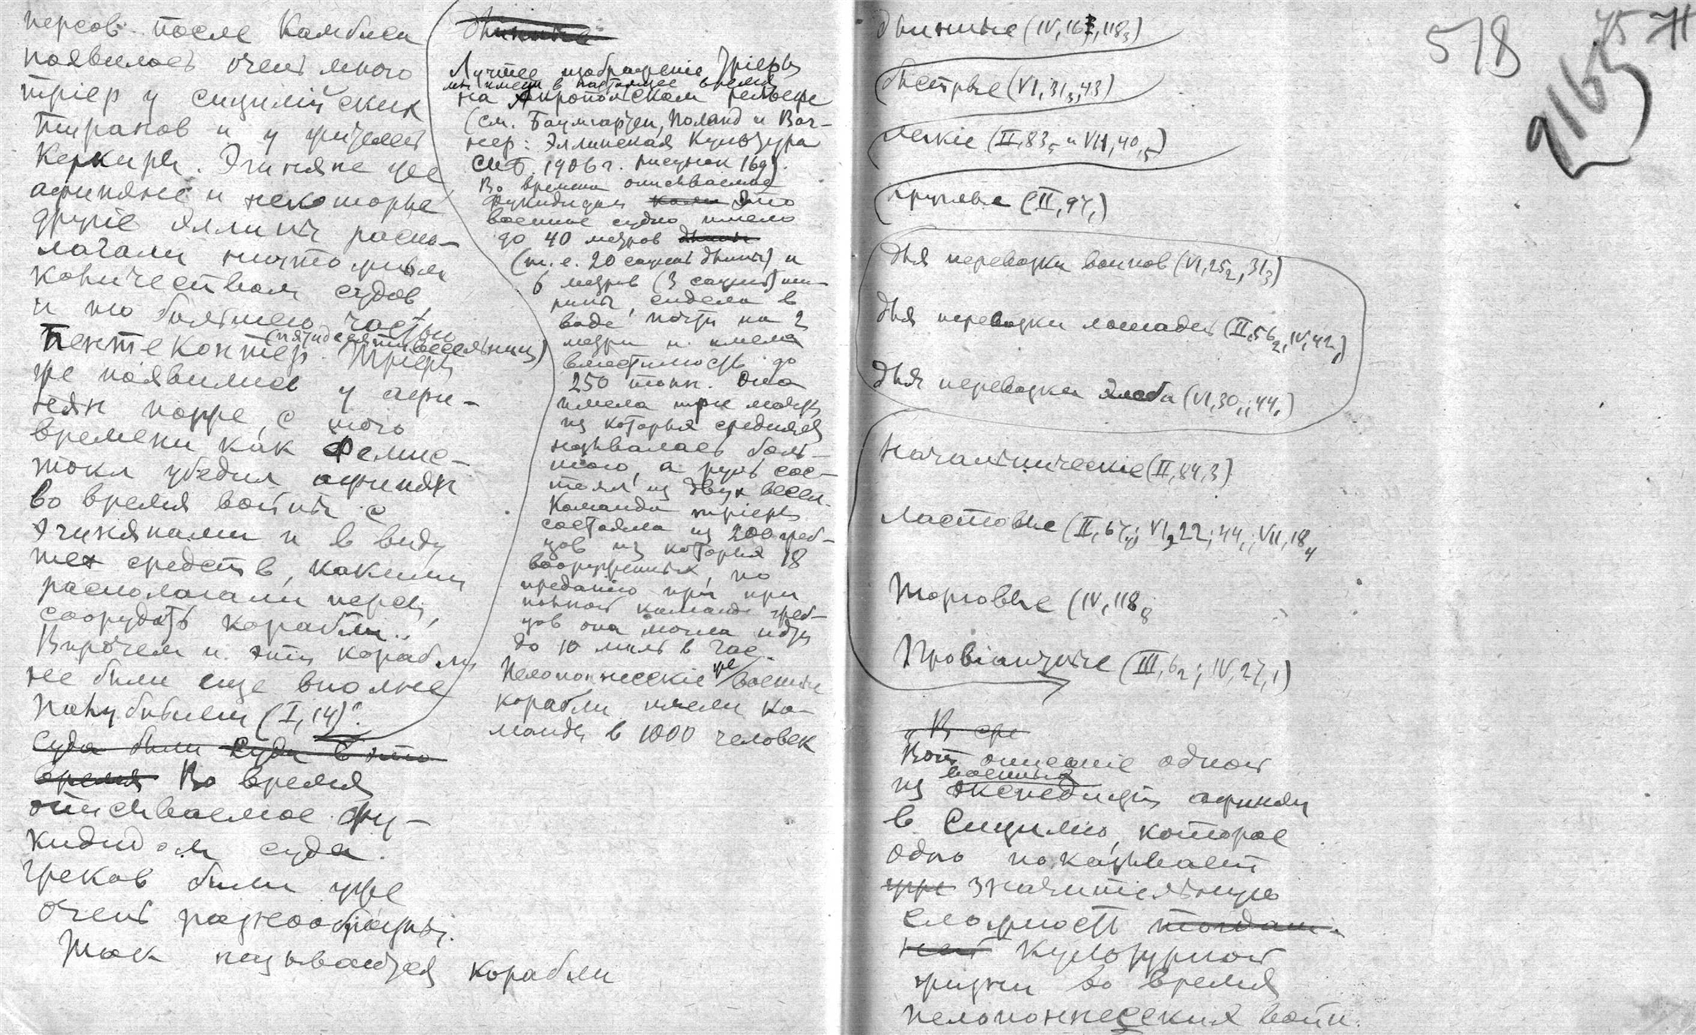 персов после Камбиса
появилось очень много
тріер у сицилійских
тиранов и у жителей
Керкиры. Эгиняне же
афиняне и некоторые
другіе эллины распо-
лагали ничтожным
количеством судов,
и по большею частью
пентеконтер (пятидесятивесельных). Тріеры
же появились у афи-
нян позже, с того
времени как Фемис-
токл убедил афинян
во время войны с
эгинянами и в виду
тех средств, какими
располагали персы,
соорудить корабли..
Впрочем и эти корабли
не были еще вполне
палубными (I, 14)".
суда были суда в это
время Во время
описываемое Фу-
кидидом суда
греков были уже
очень разнообразны.
Так называются корабли
длинные
Лучшее изображеніе Тріеры
мы имеем в настоящее время
на Акропольском рельефе
(см. Баумгартен, Поланд и Ваг-
нер: Эллинская Культура
СПБ 1906 г. рисунок 169).
Во времена описываемые
Фукидидом это
военное судно имело
до 40 метров длины
(т. е. 20 сажень длины) и
6 метров (3 сажени) ши-
рины, сидела в
воде почти на 2
метра и имела
вместимость до
250 тонн. Она
имела три мачты
из которых средняя
называлась боль-
шою, а руль сос-
тоял из двух весел.
Команда тріеры
состояла из 200 греб-
цов из которых 18
вооруженных, по
преданію при
полной команде греб-
цов она могла идти
до 10 миль в час.
Пелопоннесскіе же военные
корабли имели ко-
манды в 1000 человек
длинные (IV, 16, 118)
быстрые (VI, 31, 43)
легкіе (II, 83 и VII, 40)
круглые (II, 97)
для перевозки воинов (VI, 25, 31)
для перевозки лошадей (II, 56, IV, 42)
для перевозки хлеба (VI, 30, 44)
Начальническіе (II, 84, 3)
Ластовые (II, 67; VI, 22; 44; VII, 18
Торговые (IV, 118
Провіантные (III, 6; IV, 27, 1)
В сре
Вот описаніе одной
из военных экспедицій афинян
в Сицилію, которое
одно показывает
уже значительную
сложность тогдаш-
ней культурной
жизни во время
Пелопоннесских войн.
578
75
71
9165